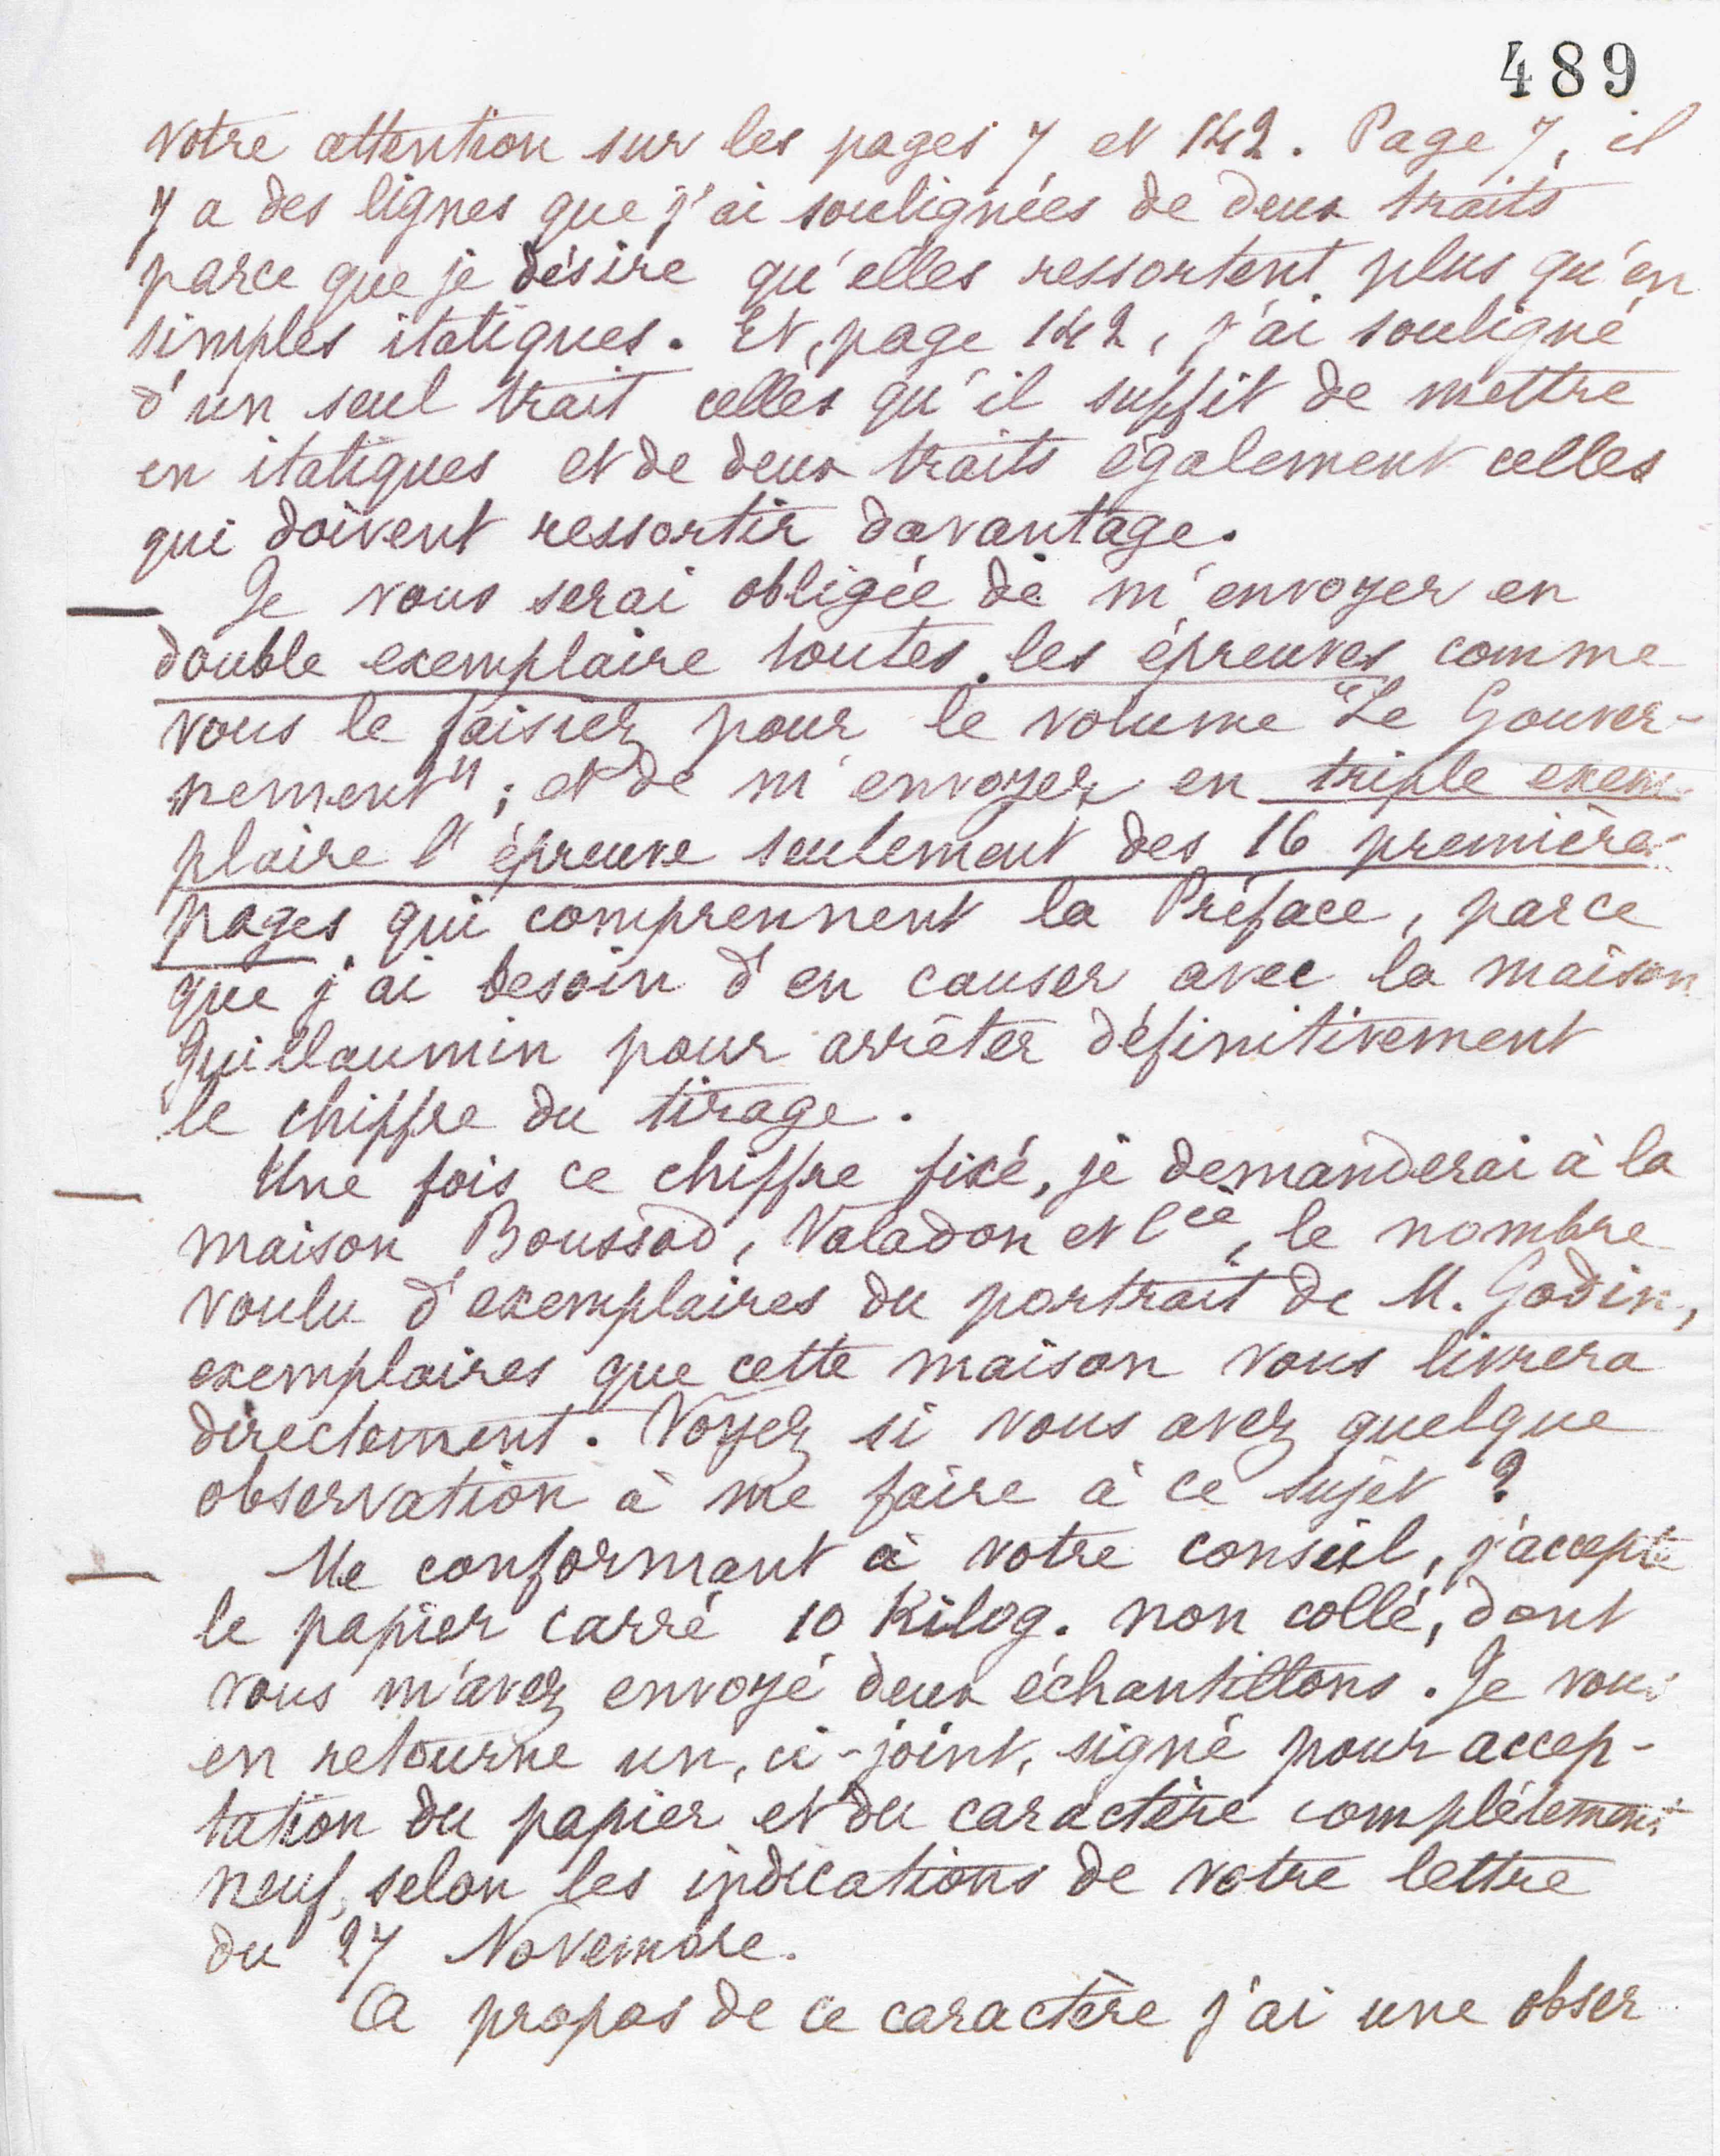 489
votre attention sur les pages 7 et 142. Page 7, il
y a des lignes que j'ai soulignées de deux traits
parce que je désire qu'elles ressortent plus qu'en
simples italiques. Et, page 142, j'ai souligné
d'un seul trait celles qu'il suffit de mettre
en italiques et de deux traits également celles
qui doivent ressortir davantage.
Je vous serai obligée de m'envoyer en
double exemplaire toutes les épreuves comme
vous le faisiez pour le volume "Le Gouver-
nement"; et de m'envoyer en triple exem-
plaire l'épreuve seulement des 16 premières
pages qui comprennent la Préface, parce
que j'ai besoin d'en causer avec la maison
Guillaumin pour arrêter définitivement
le chiffre du tirage.
Une fois ce chiffre fixé, je demanderai à la
maison Boussod, Valadon et Cie, le nombre
voulu d'exemplaires du portrait de M. Godin,
exemplaires que cette maison vous livrera
directement. Voyez si vous avez quelque
observation à me faire à ce sujet ?
Me conformant à votre conseil, j'accepte
le papier carré 10 Kilog. non collé, dont
vous m'avez envoyé deux échantillons. Je vous
en retourne un, ci-joint, signé pour accep-
tation du papier et du caractère complètement
neuf, selon les indications de votre lettre
du 27 Novembre.
A propos de ce caractère j'ai une obser